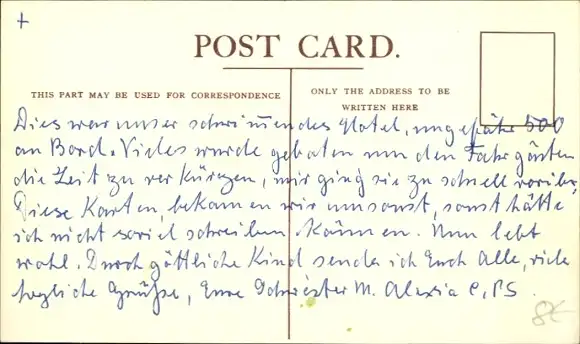 +
POST CARD.
THIS PART MAY BE USED FOR CORRESPONDENCE
ONLY THE ADDRESS TO BE
WRITTEN HERE
Dies war unser schwimmendes Hotel, ungefähr 500
an Bord. Vieles wurde geboten um den Fahrgästen
die Zeit zu verkürzen, mir ging sie zu schnell vorüber,
Diese Karten, bekamen wir umsonst, sonst hätte
ich nicht soviel schreiben können. Nun lebt
wohl. Durch göttliche Kind sende ich Euch Alle, viele
herzliche Grüße, Eure Schwester M. Alexia C.PS.